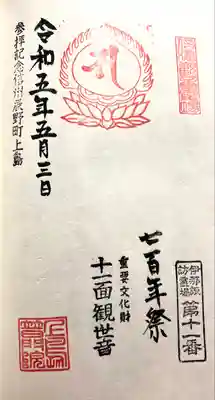 伊那諏
訪霊場
第十一番
七百年祭
重要文化財
十一面観世音
令和五年五月三日
参拝記念信州辰野町上島